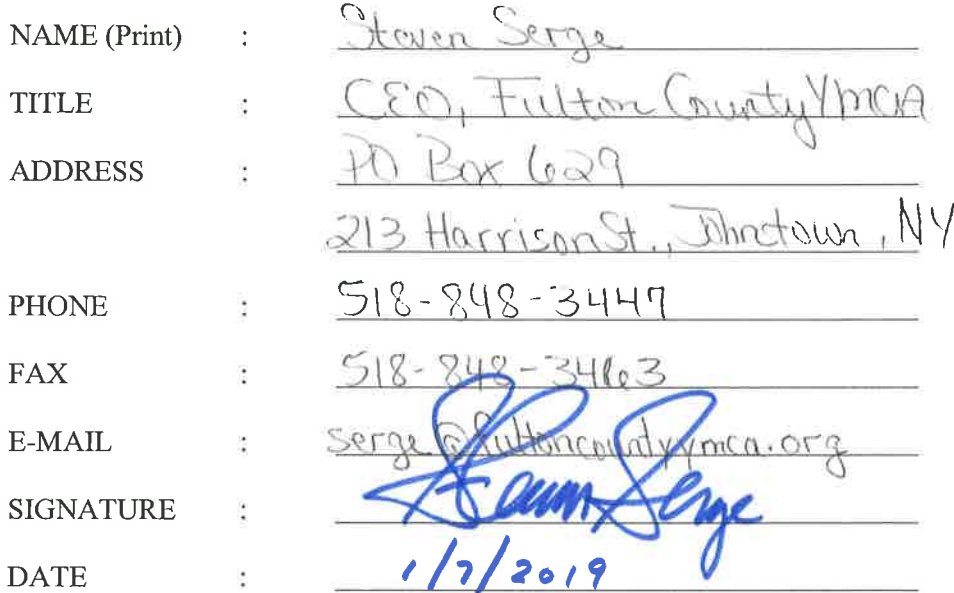 NAME (Print) : Steven Serge
TITLE : CEO, Fulton County YMCA
ADDRESS : PO Box 629
213 Harrison St., Johnstown, NY
PHONE : 518-848-3447
FAX : 518-848-3463
E-MAIL : serge@fultoncountyymca.org
SIGNATURE : Steven Serge
DATE : 1/7/2019